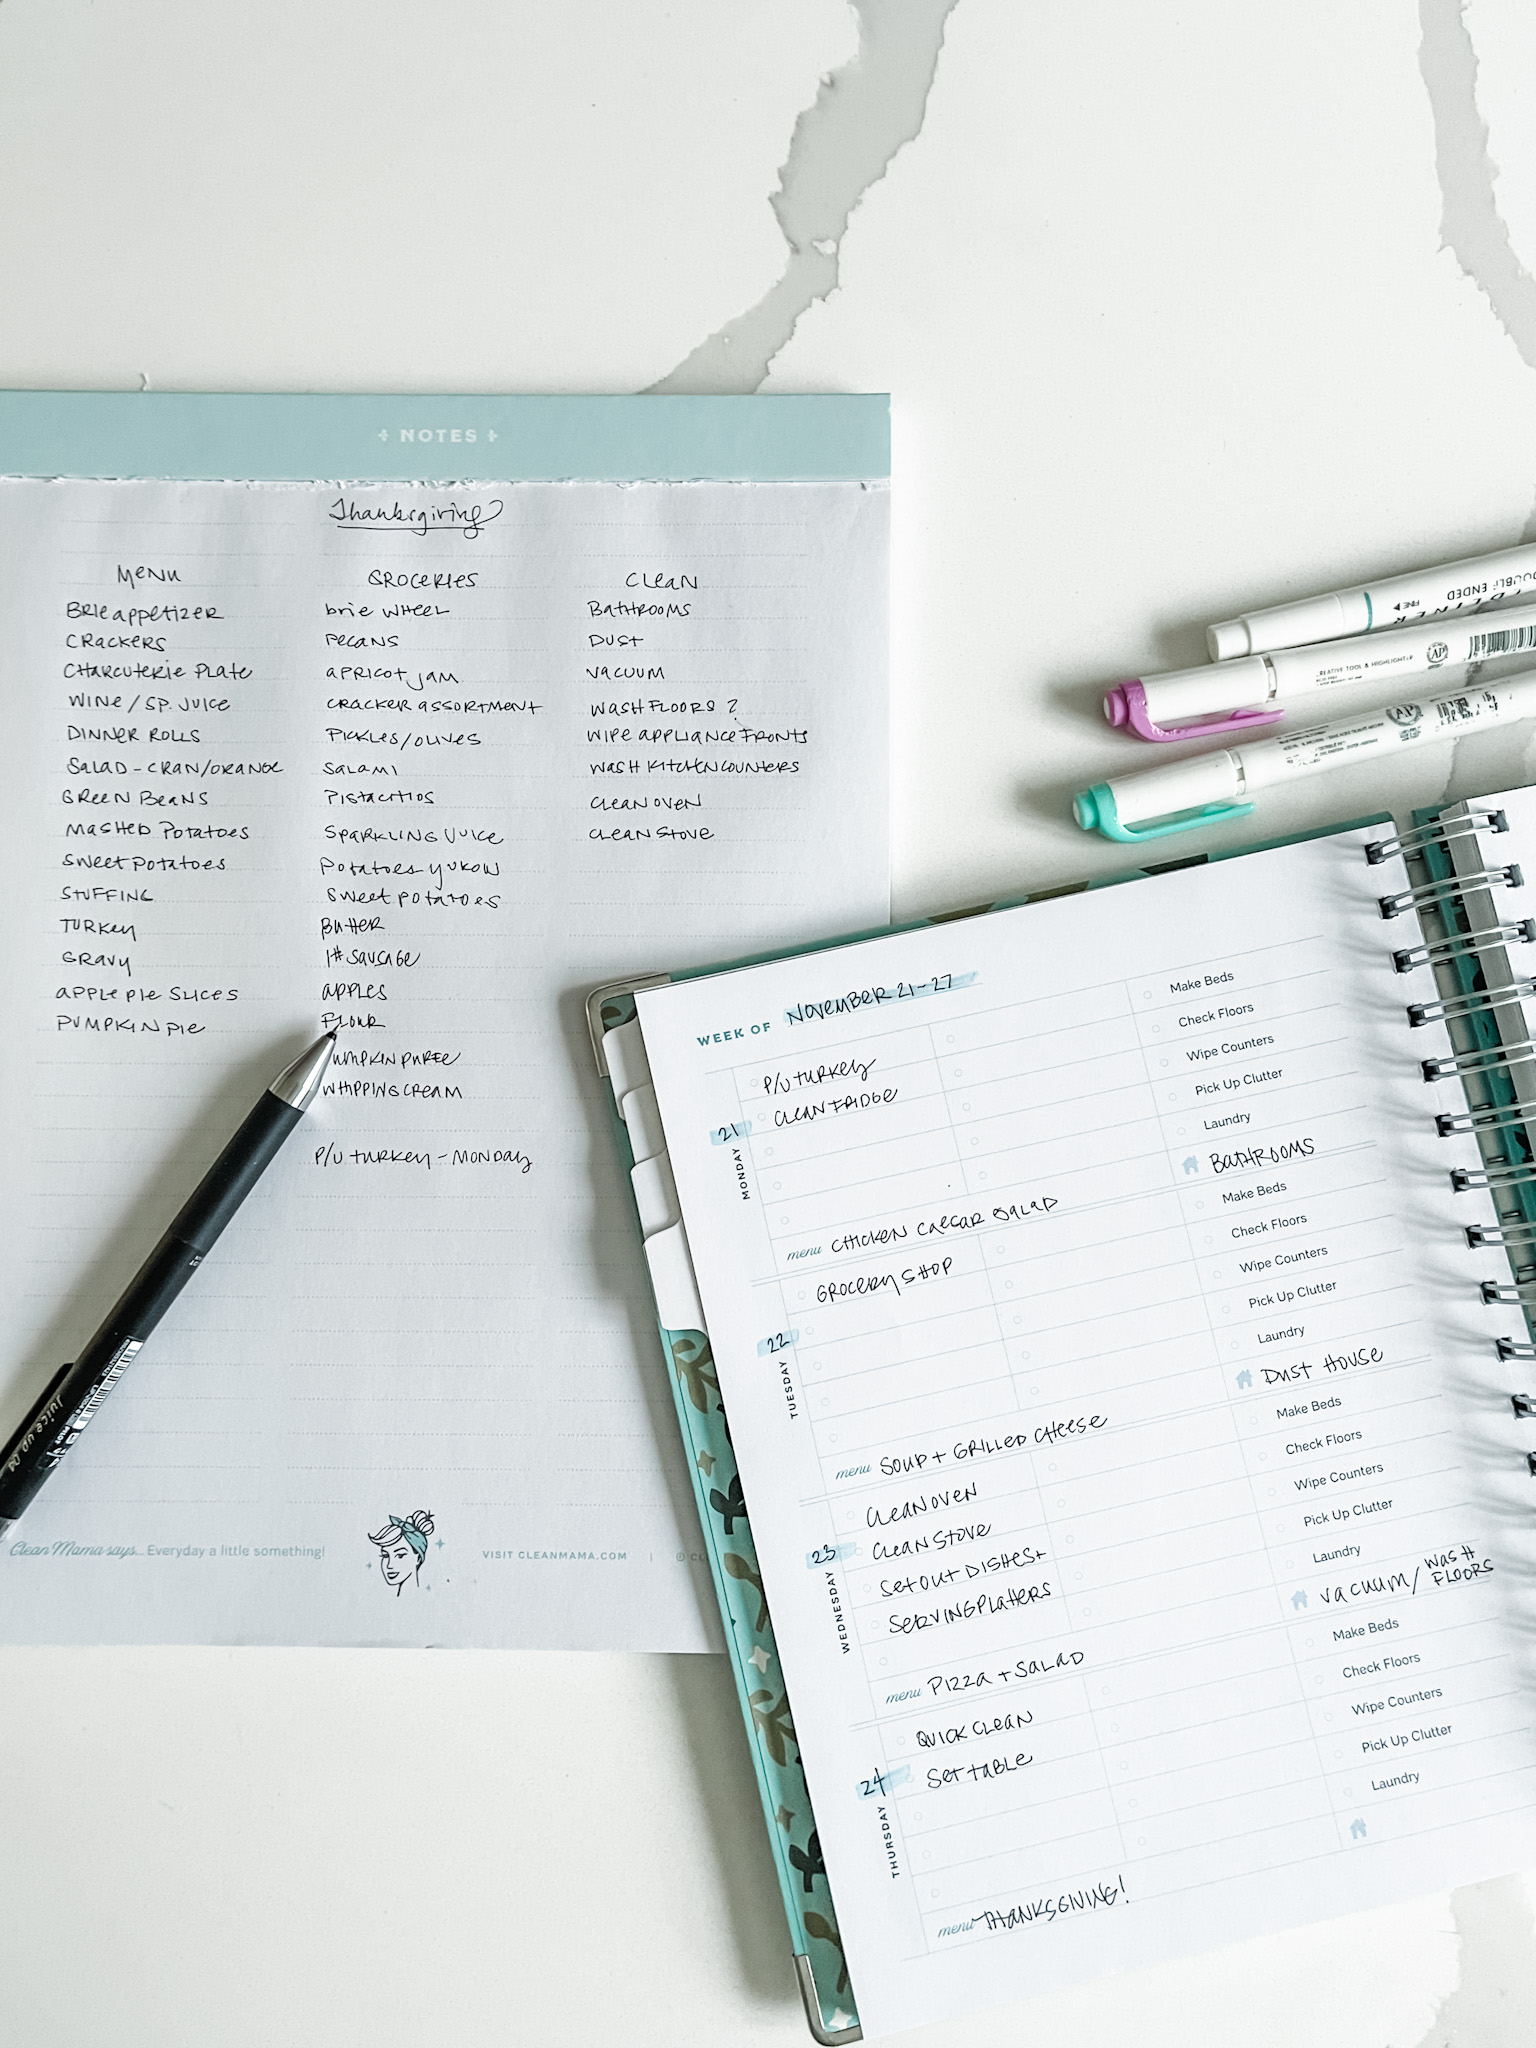 + NOTES +
Thanksgiving
MENU
BRIE appetizer
CRACKERS
CHARCUTERIE PLATE
WINE / SP. JUICE
DINNER ROLLS
SALAD - CRAN/ORANGE
GREEN BEANS
MASHED POTATOES
SWEET POTATOES
STUFFING
TURKEY
GRAVY
APPLE PIE SLICES
PUMPKIN PIE
GROCERIES
brie WHEEL
PECANS
APRICOT JAM
CRACKER ASSORTMENT
PICKLES/OLIVES
SALAMI
PISTACHIOS
SPARKLING JUICE
POTATOES YUKON
SWEET POTATOES
BUTTER
1# SAUSAGE
APPLES
FLOUR
WHIPPING CREAM
P/U TURKEY - MONDAY
CLEAN
BATHROOMS
DUST
VACUUM
WASH FLOORS ?
WIPE APPLIANCE FRONTS
WASH KITCHEN COUNTERS
CLEAN OVEN
CLEAN STOVE
Clean Mama says... Everyday a little something!
VISIT CLEANMAMA.COM
Juice up 04
PILOT
DOUBLE ENDED
FINE
CREATIVE TOOL & HIGHLIGHTER
AP
AP
WEEK OF NOVEMBER 21-27
21
MONDAY
P/U TURKEY
CLEAN FRIDGE
Make Beds
Check Floors
Wipe Counters
Pick Up Clutter
Laundry
BATHROOMS
menu CHICKEN CAESAR SALAD
22
TUESDAY
GROCERY SHOP
Make Beds
Check Floors
Wipe Counters
Pick Up Clutter
Laundry
DUST HOUSE
menu SOUP + GRILLED CHEESE
23
WEDNESDAY
CLEAN OVEN
CLEAN STOVE
SET OUT DISHES +
SERVING PLATTERS
Make Beds
Check Floors
Wipe Counters
Pick Up Clutter
Laundry
VACUUM / WASH FLOORS
menu PIZZA + SALAD
24
THURSDAY
QUICK CLEAN
SET TABLE
Make Beds
Check Floors
Wipe Counters
Pick Up Clutter
Laundry
menu THANKSGIVING!